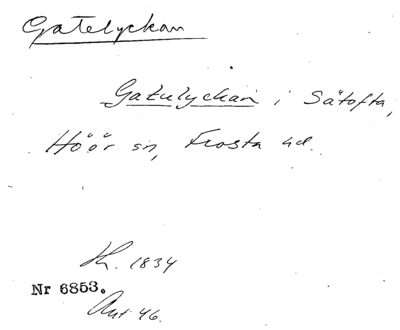 Gatelyckan
Gatulyckan i Sätofta,
Höör sn, Frosta hd.
Kh. 1834
Nr 6853.
Ant 46.